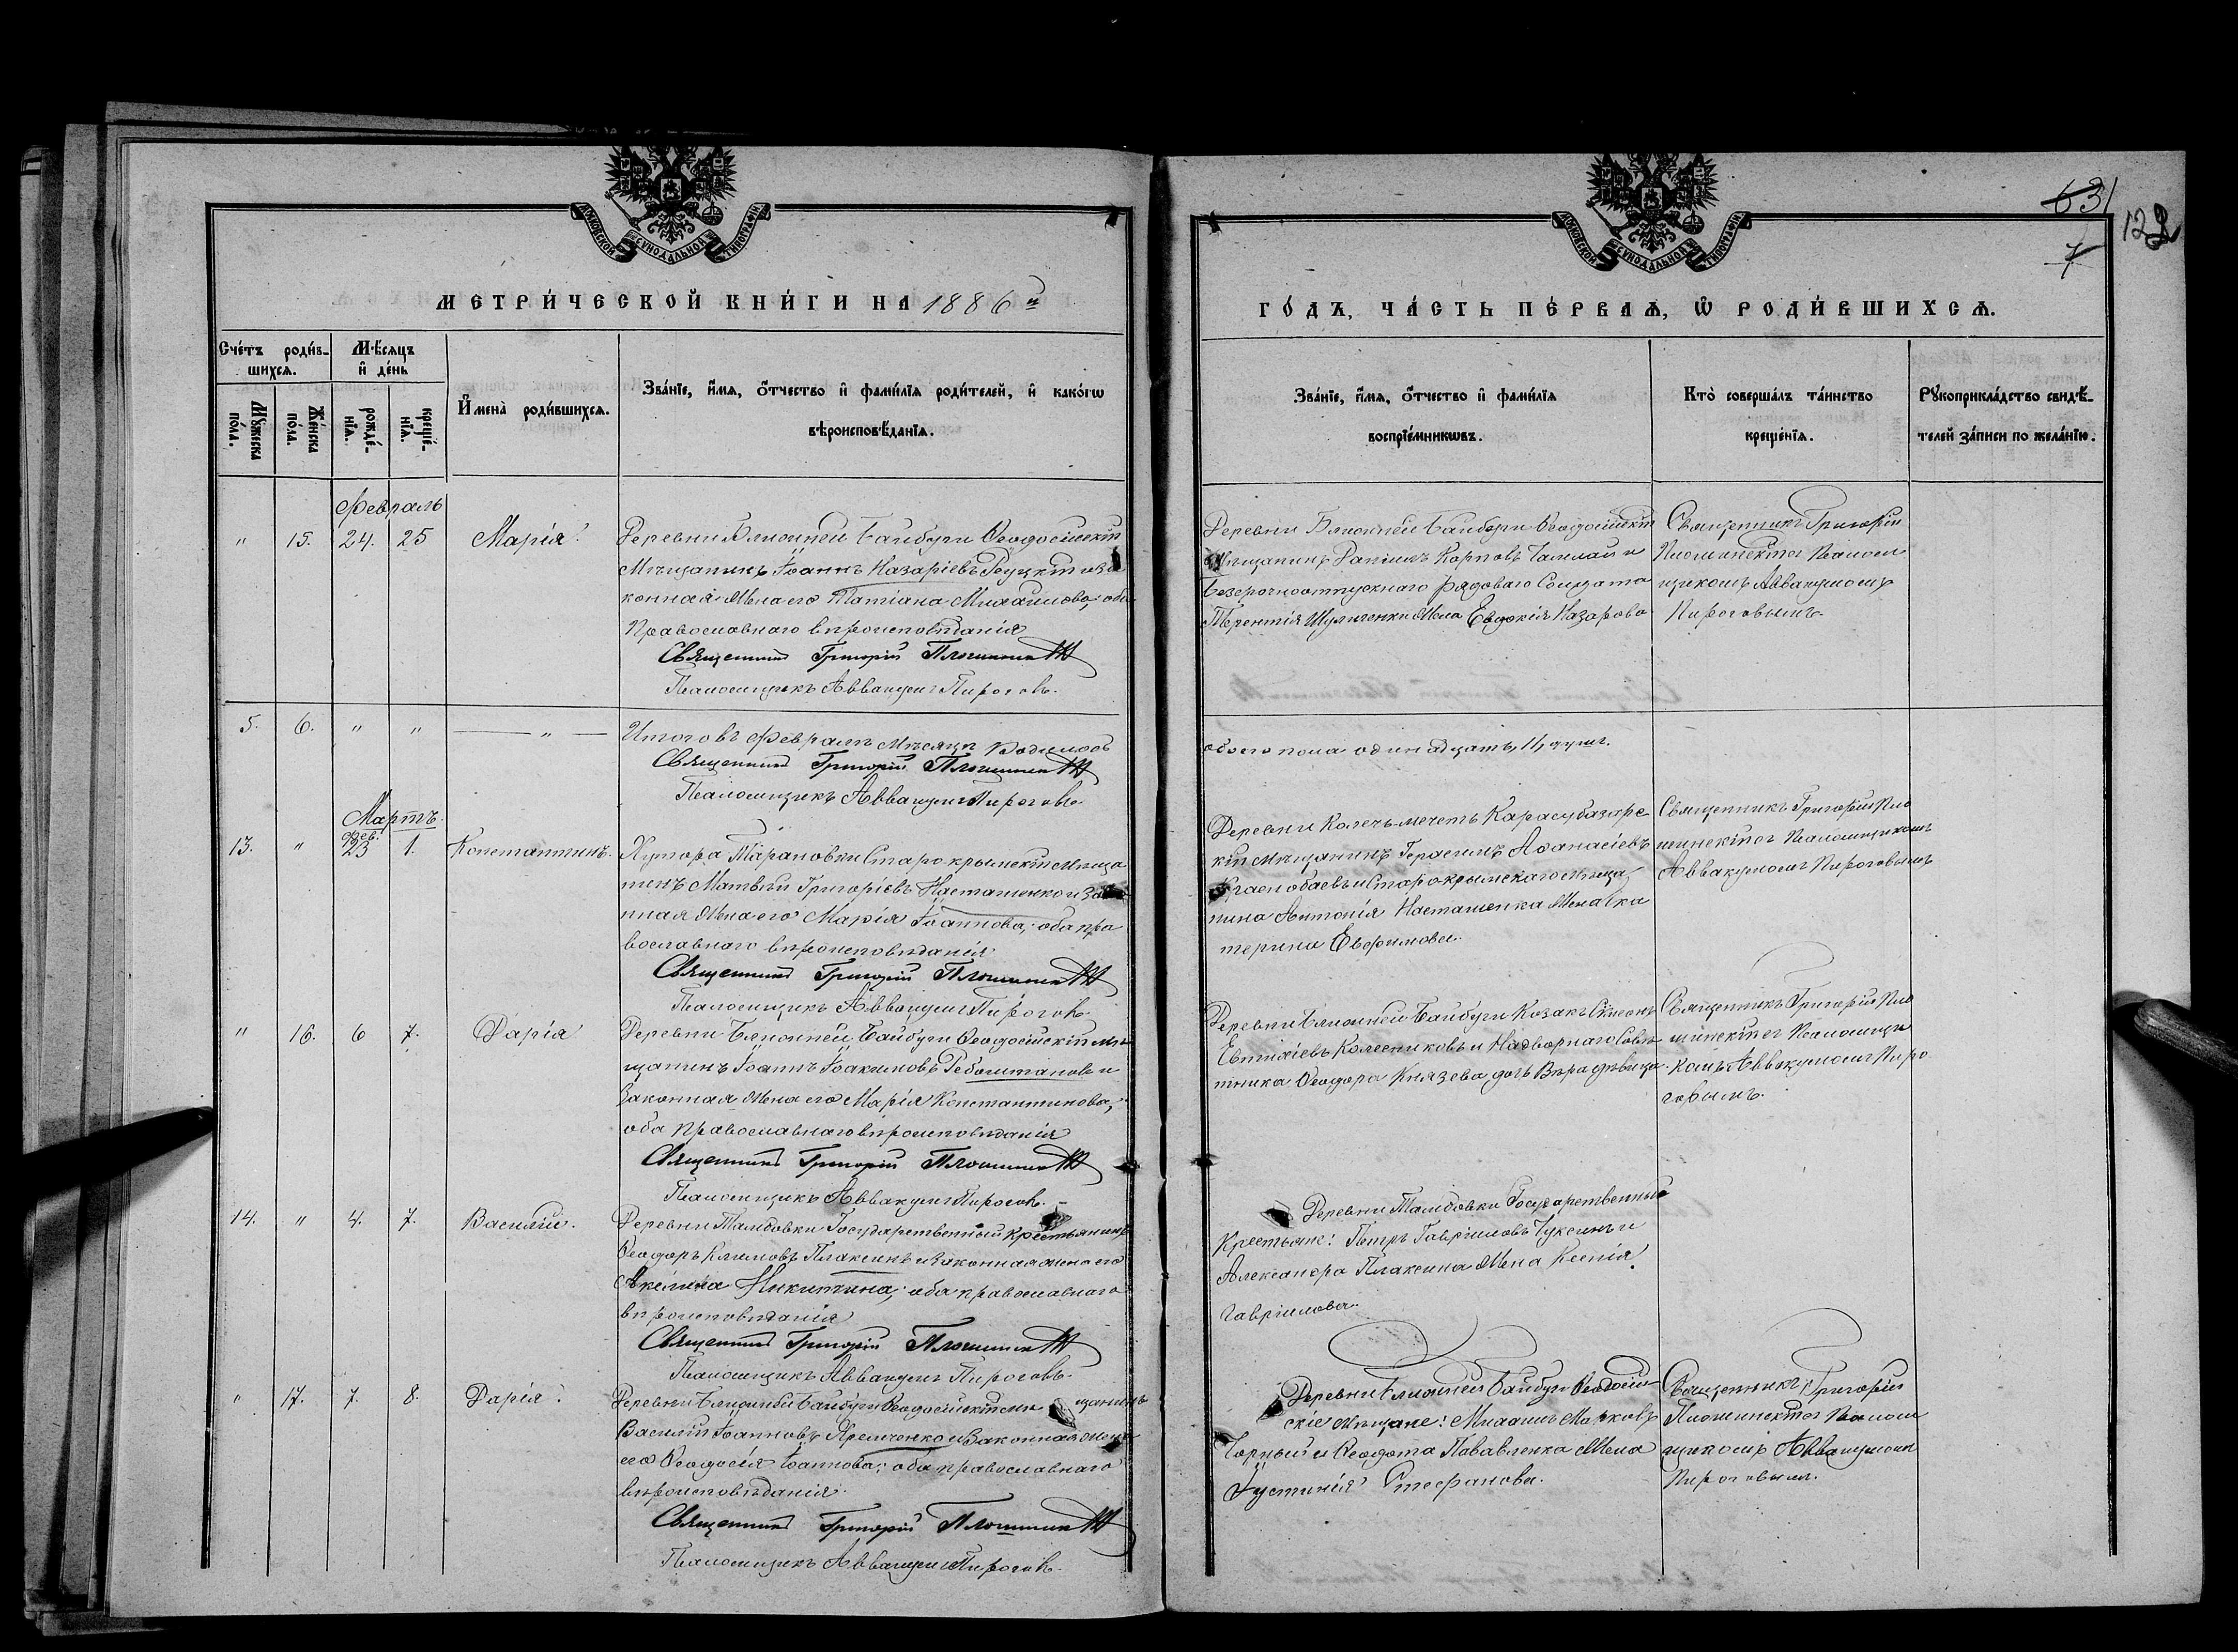 МОСКОВСКОЙ СѴНОДАЛЬНОЙ ТИПОГРАФІИ
МЕТРИ́ЧЕСКОЙ КНИ́ГИ НА 1886 й
Сче́тъ роди́в-
шихсѧ.
Мѣ́сяцъ
и҆ де́нь
Мꙋ́жеска
по́ла.
Же́нска
по́ла.
рожде́-
нїѧ.
креще́-
нїѧ.
И҆мена̀ роди́вшихсѧ.
Зва́нїе, и҆́мѧ, ѻ҆́тчество и҆ фамі́лїѧ роди́телей, и҆ како́гѡ
вѣроисповѣ́данїѧ.
Февраль
" 15. 24. 25 Марія.
Деревни Ближней Байбуги Ѳеодосійскій
Мѣщанинъ Іоаннъ Назаріевъ и за
конная жена его Татіана Михайлова, оба
Православнаго вѣроисповѣданія
Священникъ Григорій
Псаломщикъ Аввакумъ Пироговъ.
5. 6. " " — " —
Итого въ Февралѣ мѣсяцѣ родилось
Священникъ Григорій
Псаломщикъ Аввакумъ Пироговъ.
Мартъ.
13. " Фев. 23 1. Константинъ.
Хутора Тарановки Старокрымскій мѣща
нинъ Матвѣй Григоріевъ Насташенко и зако
нная жена его Марія Іоаннова, оба пра
вославнаго вѣроисповѣданія
Священникъ Григорій
Псаломщикъ Аввакумъ Пироговъ.
" 16. 6 7. Дарія
Деревни Ближней Байбуги Ѳеодосійскій мѣ
щанинъ Іоаннъ Іоакимовъ и
законная жена его Марія Константинова,
оба Православнаго вѣроисповѣданія
Священникъ Григорій
Псаломщикъ Аввакумъ Пироговъ.
14. " 4. 7. Василій.
Деревни Тамбовки Государственный крестьянинъ
Ѳеодоръ Климовъ Плаксинъ и законная жена его
Акелина Никитина, оба православнаго
вѣроисповѣданія
Священникъ Григорій
Псаломщикъ Аввакумъ Пироговъ.
" 17. 7. 8. Дарія.
Деревни Ближней Байбуги Ѳеодосійскій мѣ щанинъ
Василій Іоанновъ Яременко и законная жена
его Ѳеодосія Іоаннова; оба православнаго
вѣроисповѣданія.
Священникъ Григорій
Псаломщикъ Аввакумъ Пироговъ.
МОСКОВСКОЙ СѴНОДАЛЬНОЙ ТИПОГРАФІИ
63
7
ГО́ДЪ, ЧА́СТЬ ПЕ́РВАѦ, Ѡ҆ РОДИ́ВШИХСѦ.
Зва́нїе, и҆́мѧ, ѻ҆́тчество и҆ фамі́лїѧ
воспрїе́мникѡвъ.
Кто̀ соверша́лъ та́инство
креще́нїѧ.
Рꙋкоприкла́дство свидѣ́-
телей за́писи по жела́нїю.
Деревни Ближней Байбуги Ѳеодосійскій
Мѣщанинъ Даніилъ Карповъ и
безсрочноотпускнаго рядоваго Солдата
Терентія жена Евдокія Назарова
Священникъ Григорій
Псалом
щикомъ Аввакумомъ
Пироговымъ.
обоего пола одинадцать, 11, душъ.
Деревни Колечь-мечеть Карасубазарс
кій мѣщанинъ Герасимъ Аѳанасіевъ
и Старокрымскаго мѣща
нина Антонія Насташенка жена Ека
терина Евфимова.
Священникъ Григорій
Псаломщикомъ
Аввакумомъ Пироговымъ
Деревни Ближней Байбуги Козакъ Сѵмеонъ
Колесниковъ и Надворнаго Совѣ
тника Ѳеодора Князева дочь Вѣра дѣвица.
Священникъ Григорій
Псаломщи
комъ Аввакумомъ Пиро
говымъ.
Деревни Тамбовки Государственные
Крестьяне: Петръ Гавріиловъ Чуксинъ и
Александра Плаксина жена Ксенія
Гавріилова.
Деревни Ближней Байбуги Ѳеодосій
скіе мѣщане: Михаилъ Марковъ
Чорный и Ѳеодота жена
Іустинія Стефанова.
Священникъ Григорій
Псалом
щикомъ Аввакумомъ
Пироговымъ.